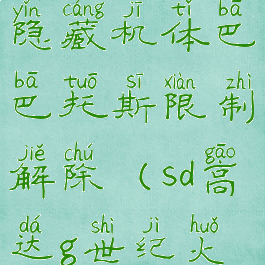 yǐn cáng jī tǐ bā
隐藏机体巴
bā tuō sī xiàn zhì
巴托斯限制
jiě chú gāo
解除（sd高
dá shì jì huǒ
达g世纪火